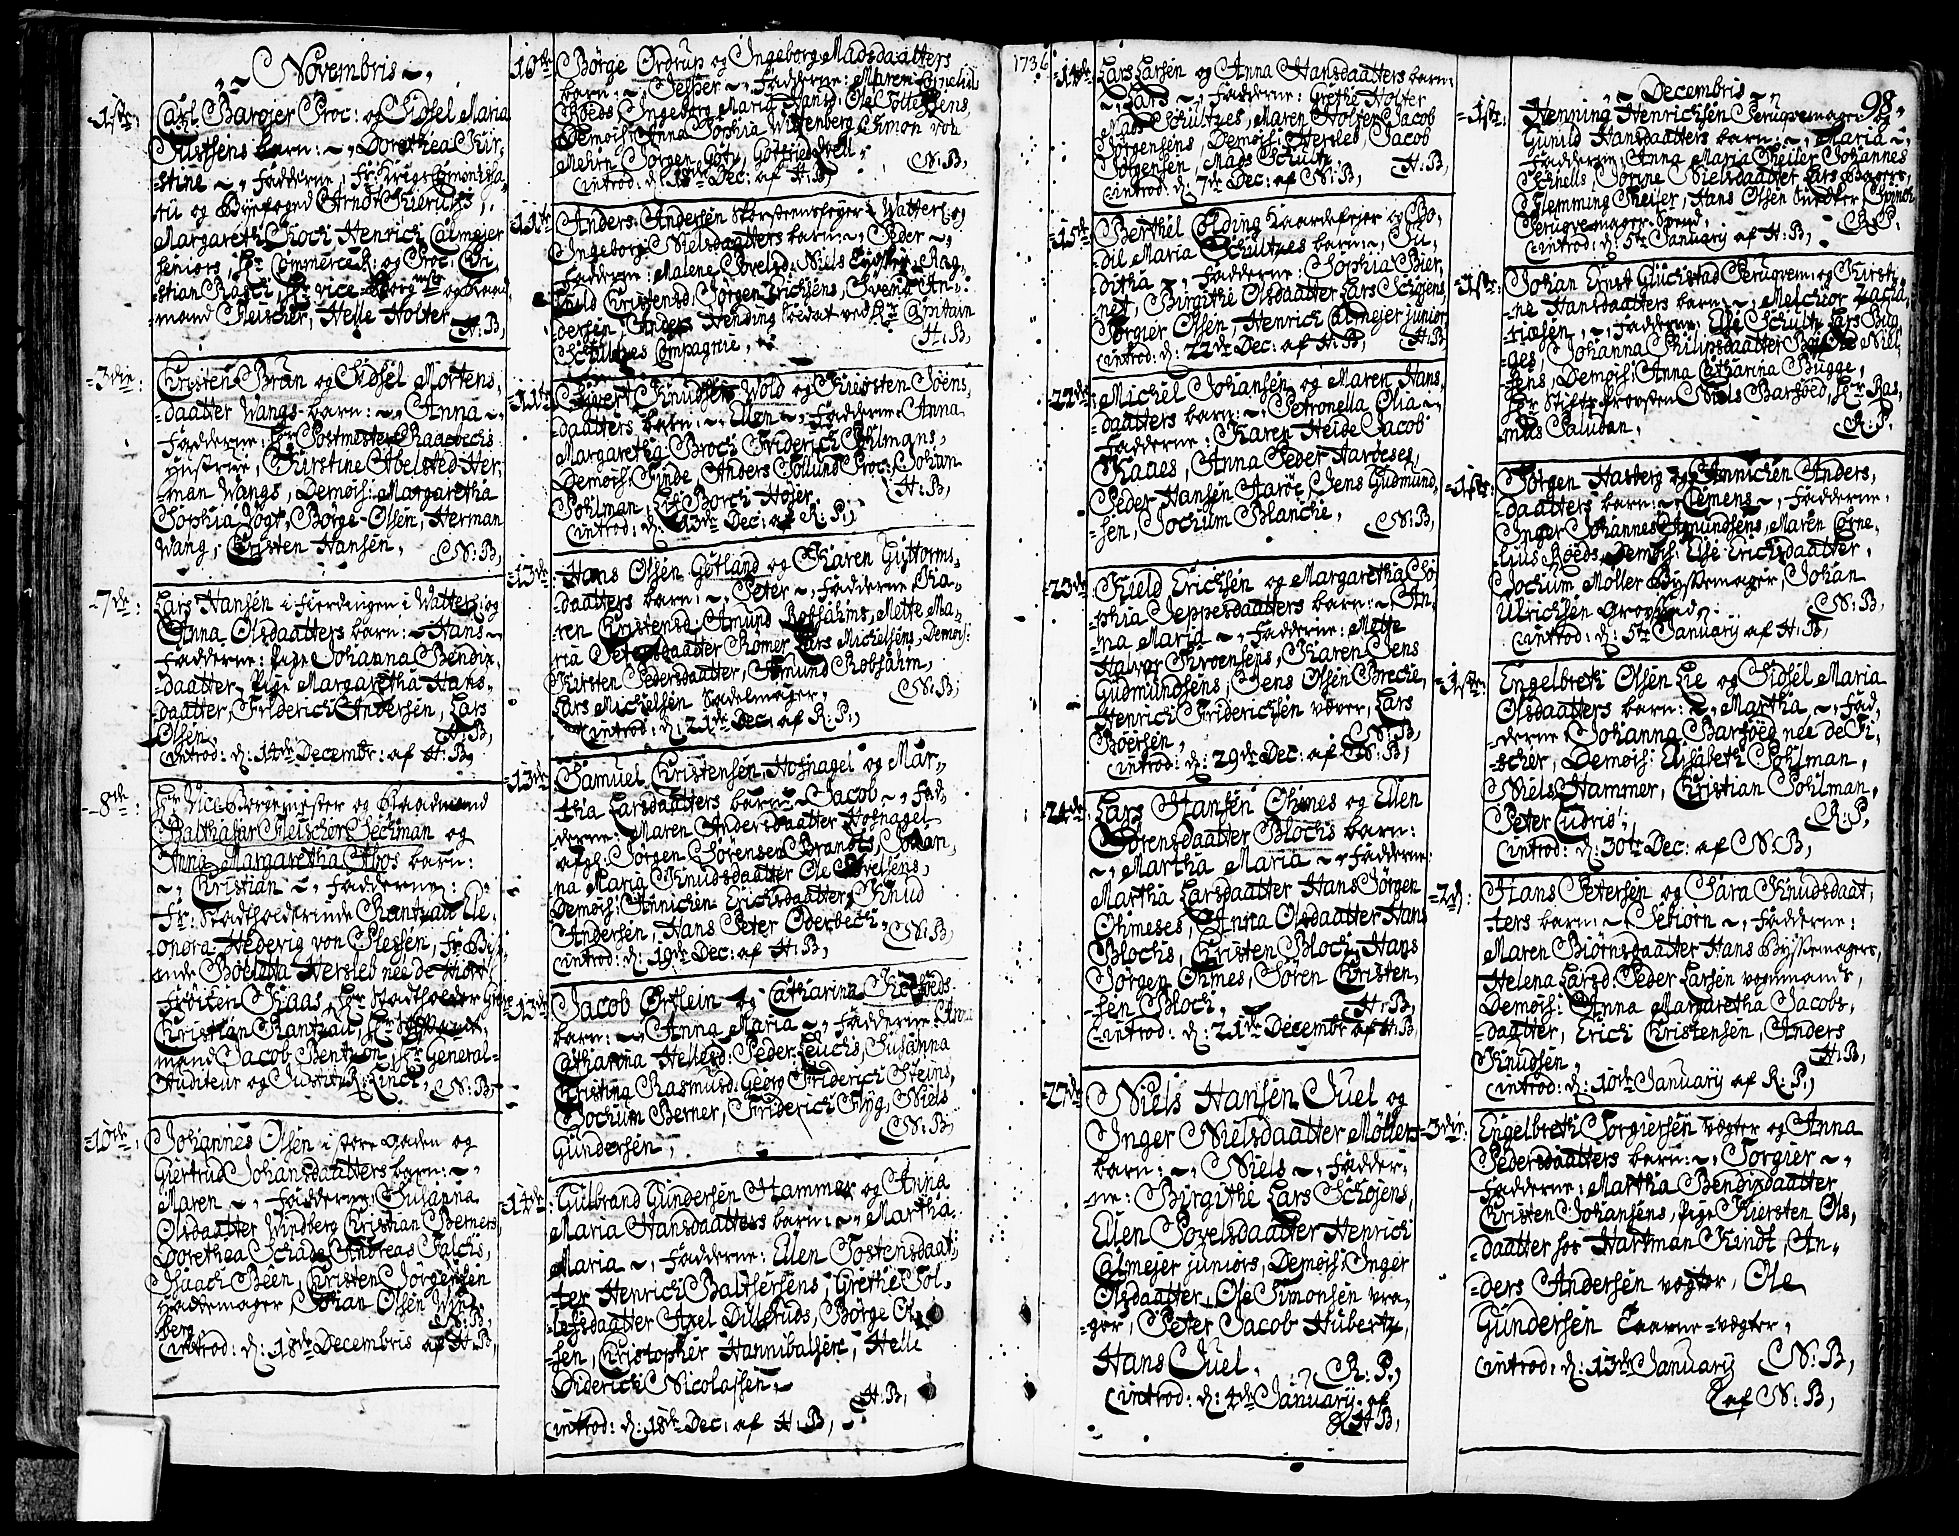 Novembris
1ste:
Carl Barojer Proc: og Sidsel Maria
Justsens barn: Dorothea Kir,
stine, Fadderne, Fr: Krigs Commissa,
rii og Byefoged Arndt
Margareth Koch Henrich Calmejer
seniors, Hr Commerce R: og Proc: Chri,
stian Rasch, Hr vice Borg og Raad
mand Fleischer, Helle Holter
H: B,
3die:
Kristen Brun og Sidsel Mortens,
daatter Wangs barn: Anna,
Fadderne: Hr Postmester
hustrue, Kirstine Abelsted Her,
man Wangs, Demois: Margaretha
Sophia Vogt, Börge Olsen, Herman
Wang, Kristen Hansen, N: B,
7de:
Lars Hansen i Fierdingen i Watterl: og
Anna Olsdaatters barn: Hans
Fadderne: Pige Johanna Bendix,
daatter, Pige Margaretha Hans,
daatter, Friderich Andersen, Lars
Olsen, H: B,
introd: d: 14de Decembr: af H: B,
8de:
Hr Vice Borgemester og Raadmand
Balthasar Fleischer Sechman og
Anna Margaretha Abos barn:
Kristian, Fadderne:
Fr: Stadtholderinde Rantzau Ele,
onora Hedevig von Plessen, Fr
inde Hersleb nee de
Fröiken Kaas, Hr Stadtholder
Christian Rantzau, Hr
mand Jacob Bentzon, Hr General
Auditeur og Justitz R: Finck, N: B,
10de,
Johannes Olsen i store gaden og
Giertrud Johansdaatters barn:
Maren, Fadderne: Susanna
Olsdaatter Windberg Christian Berners,
Dorethea Schade Andreas Falchs,
Isaach Been, Christen Jörgensen
Johan Olsen Wind,
berg N: B,
introd: d: 18de Decembris af H: B,
10de
Börge Ordrup og Ingeborg Madsdaatters
barn: Jesper, Fadderne: Maren Cornelius
Röeds, Ingeborg Maria Hans
Demois: Anna Sophia Wittenberg Simon von
Mehrn, Jörgen Götz, Gotfried
N: B,
introd: d: 18de Dec: af H: B,
11te
Anders Andersen Skorsteensfejer i Watterl: og
Ingeborg Nielsdaatters barn: Peder,
Fadderne: Malene Povelsd: Niels
Christensd, Jörgen Erichsens, Svend An,
dersen, Anders Hending Soldat ved Hr Capitain
Schultzes Compagnie, H: B,
11te
Sivert Knudsen Wold og Kiersten Joens,
daatters barn: Ellen, Fadderne: Anna
Margaretha Broch Friderich Pohlmans,
Demois: Finde, Anders Proc: Johan
Pohlman, Borch Hojer, H: B,
introd: d: 13de Dec: af R: P,
13de
Hans Olsen Gotland og Karen Guttorms,
daatters barn: Peter, Fadderne: Ka,
ren Christensd: Amund Robsahms, Mette Ma,
ria Petersdaatter Romer Lars Michelsens, Demois:
Kirsten Pedersdaatter, Amund Robsahm,
Lars Michelsen Sadelmager, N: B,
introd: d: 21de Dec: af R: P,
13de
Samuel Christensen Hofnagel og Mar,
tha Larsdaatters barn: Jacob, Fad,
derne: Maren Andersdaatter Hofnagel
Jörgen Sörensen Brandts, Johan,
na Maria Knudsdaatter Ole Povelsens,
Demois: Annichen Erichsdaatter, Knud
Andersen, Hans Peter Oderbech, N: B,
introd: d: 19de Dec: af H: B,
13de
Jacob Orstein og Catharina
barn: Anna Maria, Fadderne: Anna
Catharina Hellesd: Peder Susanna
Kristina Rasmusd: Georg Friderich Steins,
Jochum Berner, Friderich Flyg, Niels
Gundersen, N: B,
14de
Gulbrand Gundersen Hammer og Anna
Maria Hansdaatters barn: Martha
Maria, Fadderne: Ellen Tostensdaat,
ter Henrich Baltsersens, Grethe Tol,
lefsdaatter Axel Börge Ol,
sen, Christopher Hannibalsen, Helle
Diderich Nicolajsen, H: B,
introd: d: 18de Dec: af H: B,
1736
14de
Lars Larsen og Anna Hansdaatters barn:
Lars, Fadderne: Grethe Holter
Mads Schultzes, Maren Holter Jacob
Jörgensens, Demois: Hersleb, Jacob
Jörgensen, Mads Schultz, H: B,
introd: d: 7de Dec: af N: B,
15de
Berthel Olding Kaardefejer og Bo,
dil Maria Schultzes barn: Ju,
ditha, Fadderne: Sophia Bier,
net, Birgithe Olsdaatter Lars
Torgier Olsen, Henrich Calmejer junior,
introd: d: 22de Dec: af H: B, H: B,
22de
Michel Johansen og Maren Hans,
daatters barn: Petronella Olia
Fadderne: Karen Heide Jacob
Kaaes, Anna Peder Haröeses,
Peder Hansen Haröe, Jens Gudmund,
sen, Jochum Blanche, N: B,
23de
Kield Erichsen og Margaretha So,
phia Jeppesdaatters barn: An,
na Maria, Fadderne: Mette
Halvor Kroensens, Karen Jens
Gudmundsens, Jens Olsen Breche,
Henrich Friderichsen væver, Lars
Böersen, N: B,
introd: d: 29de Dec: af N: B,
24de
Lars Hansen Ohmes og Ellen
Sörensdaatter Blochs barn:
Martha Maria, Fadderne:
Martha Larsdaatter Hans Jörgen
Ohmeses, Anna Olsdaatter Hans
Blochs, Christen Bloch, Hans
Jörgen Ohmes, Sören Christen,
sen Bloch, H: B,
introd: d: 21de Decembr af H: B,
27de
Niels Hansen Juel og
Inger Nielsdaatter Möllers
barn: Niels, Fadder,
ne: Birgithe Lars Schojens,
Ellen Povelsdaatter Henrich
Calmejer juniors, Demois: Inger
Olsdaatter, Ole Simonsen vra,
ger, Peter Jacob Hubertz,
Hans Juel, R: P,
introd: d: 4de January af
H B,
98,
Decembris
1ste:
Henning Henrichsen Peruqvemager og
Gunild Hansdaatters barn: Maria,
Fadderne: Anna Maria Theiler Johannes
Schnells, Sorine Nielsdaatter Lars Bagers,
Flemming Theiler, Hans Olsen Snedker,
Peruqvemager Svend, R: P,
introd: d: 5te January af H: B,
1ste:
Johan Ernst Gluckstad Peruqvem: og Kirsti,
ne Hansdaatters barn: Melchior Zacha,
riasen, Fadderne: Else Schultz Lars Bug,
ges, Johanna Philipsdaatter Niel,
sens, Demois: Anna Catharina Bugge,
Hr Stiftsprovsten Niels Barfoed, Hr Ras,
mus Paludan, R: P,
1ste:
Jörgen Hasberg og Annichen Anders,
daatters barn: Clemens, Fadderne:
Inger Johannes Amundsens, Maren Corne,
lius Röeds, Demois: Else Erichsdaatter,
Jochum Moller Bysssemager, Johan
Ulrichsen N: B,
introd: d: 5te January af H: B,
1ste:
Engelbreth Olsen Lie og Sidsel Maria
Olsdaatters barn: Martha, Fad,
derne: Johanna Barfoed nee de Fi,
scher, Demois: Elisabeth Pohlman,
Niels Hammer, Christian Pohlman,
Peter Cudris, R: P,
introd: d: 30te Dec: af N: B,
2d:
Hans Petersen og Sara Knudsdaat,
ters barn: Tebiorn, Fadderne:
Maren Biörnsdaatter Hans Byssemagers,
Helena Larsd: Peder Larsen vognmands,
Demois: Anna Margaretha Jacobs,
daatter, Erich Christensen, Anders
Knudsen, H: B,
introd: d: 10de January af R: P,
3die:
Engelbreth Torgiersen vægter og Anna
Pedersdaatters barn: Torgier,
Fadderne: Martha Bendixdaatter
Christen Johansens, Pige Kiersten Ols,
daatter hos Hartman Kindt, An,
ders Andersen vægter, Ole
Gundersen Taarne-vægter,
introd: d: 13de January N: B,
af N: B,